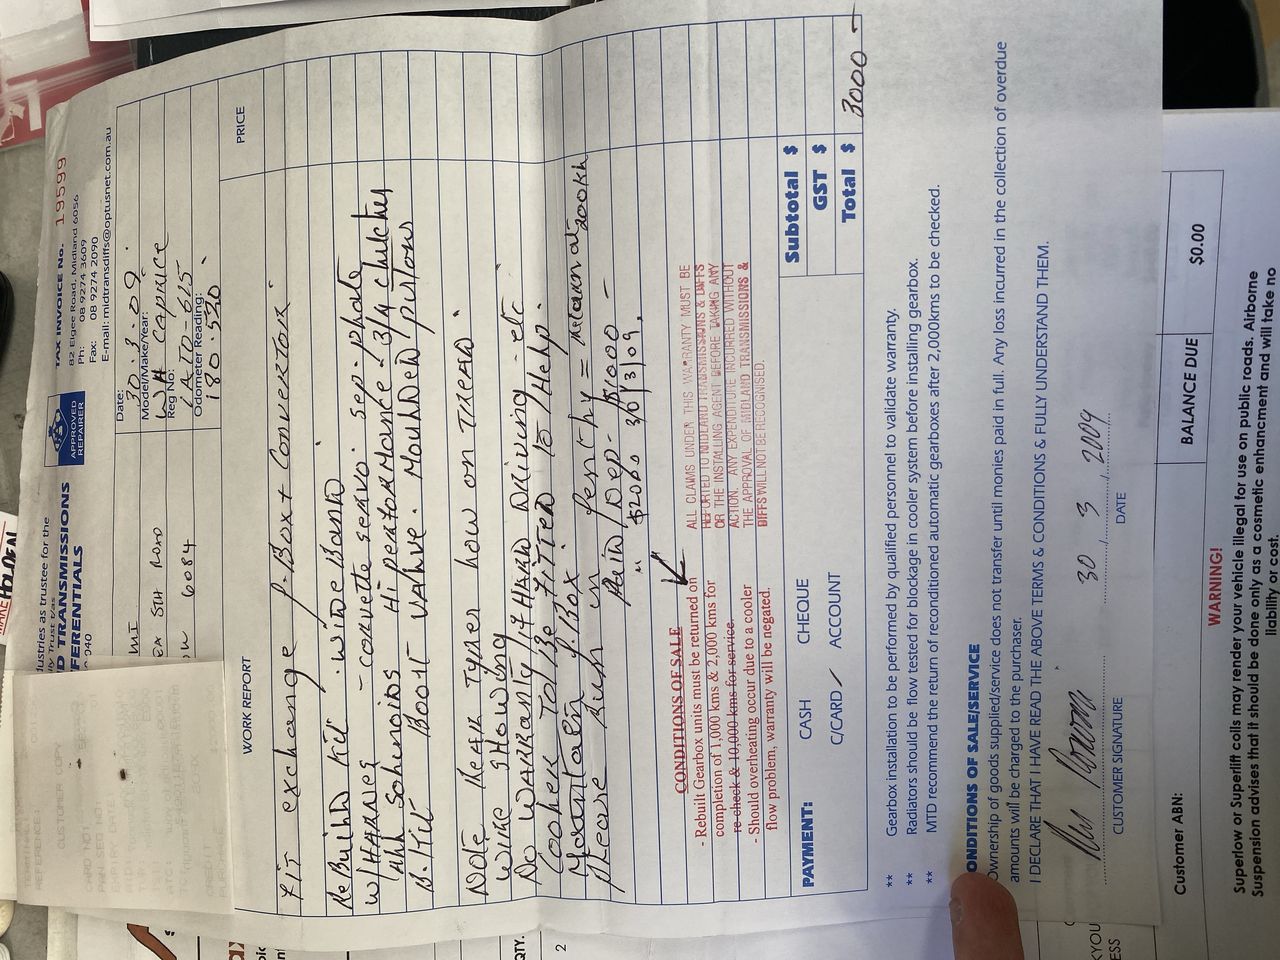 TAX INVOICE No. 19599
82 Elgee Road, Midland 6056
Ph: 08 9274 3609
Fax: 08 9274 2090
E-mail: midtransdiffs@optusnet.com.au
APPROVED
REPAIRER
dustries as trustee for the
ily Trust t/as
D TRANSMISSIONS
FERENTIALS
940
Date:
30.3.09.
Model/Make/Year:
WH CAPRICE
Reg No:
Odometer Reading:
180.530
STH ROAD
6084
CUSTOMER COPY
WORK REPORT
PRICE
FIT exchange G-Box + Convertor.
ReBuild Kit. wide Band
w/HARNESS - corvette servo. sep-plate
All Solenoids Hi performance. 3/4 clutches
S. Kit Boost VALVE. Moulded pistons
NOTE Rear Tyres low on TREAD.
wire SHowing
NO WARRANTY if HARD Driving. etc.
Cooler To/Be FiTTED To Help.
Maintain G-Box.
please Run in Gently = Return at 200 km
Paid/Dep- $1000 -
" $2000 30/3/09.
CONDITIONS OF SALE
- Rebuilt Gearbox units must be returned on
completion of 1,000 kms & 2,000 kms for
re-check & 10,000 kms for service.
- Should overheating occur due to a cooler
flow problem, warranty will be negated.
ALL CLAIMS UNDER THIS WARRANTY MUST BE
REPORTED TO MIDLAND TRANSMISSIONS & DIFFS
OR THE INSTALLING AGENT BEFORE TAKING ANY
ACTION. ANY EXPENDITURE INCURRED WITHOUT
THE APPROVAL OF MIDLAND TRANSMISSIONS &
DIFFS WILL NOT BE RECOGNISED.
PAYMENT: CASH CHEQUE
C/CARD / ACCOUNT
Subtotal $
GST $
Total $ 3000 -
** Gearbox installation to be performed by qualified personnel to validate warranty.
** Radiators should be flow tested for blockage in cooler system before installing gearbox.
** MTD recommend the return of reconditioned automatic gearboxes after 2,000kms to be checked.
ONDITIONS OF SALE/SERVICE
Ownership of goods supplied/service does not transfer until monies paid in full. Any loss incurred in the collection of overdue
amounts will be charged to the purchaser.
I DECLARE THAT I HAVE READ THE ABOVE TERMS & CONDITIONS & FULLY UNDERSTAND THEM.
30 3 2009
CUSTOMER SIGNATURE
DATE
Customer ABN:
BALANCE DUE
$0.00
WARNING!
Superlow or Superlift coils may render your vehicle illegal for use on public roads. Airborne
Suspension advises that it should be done only as a cosmetic enhancment and will take no
liability or cost.
QTY.
2